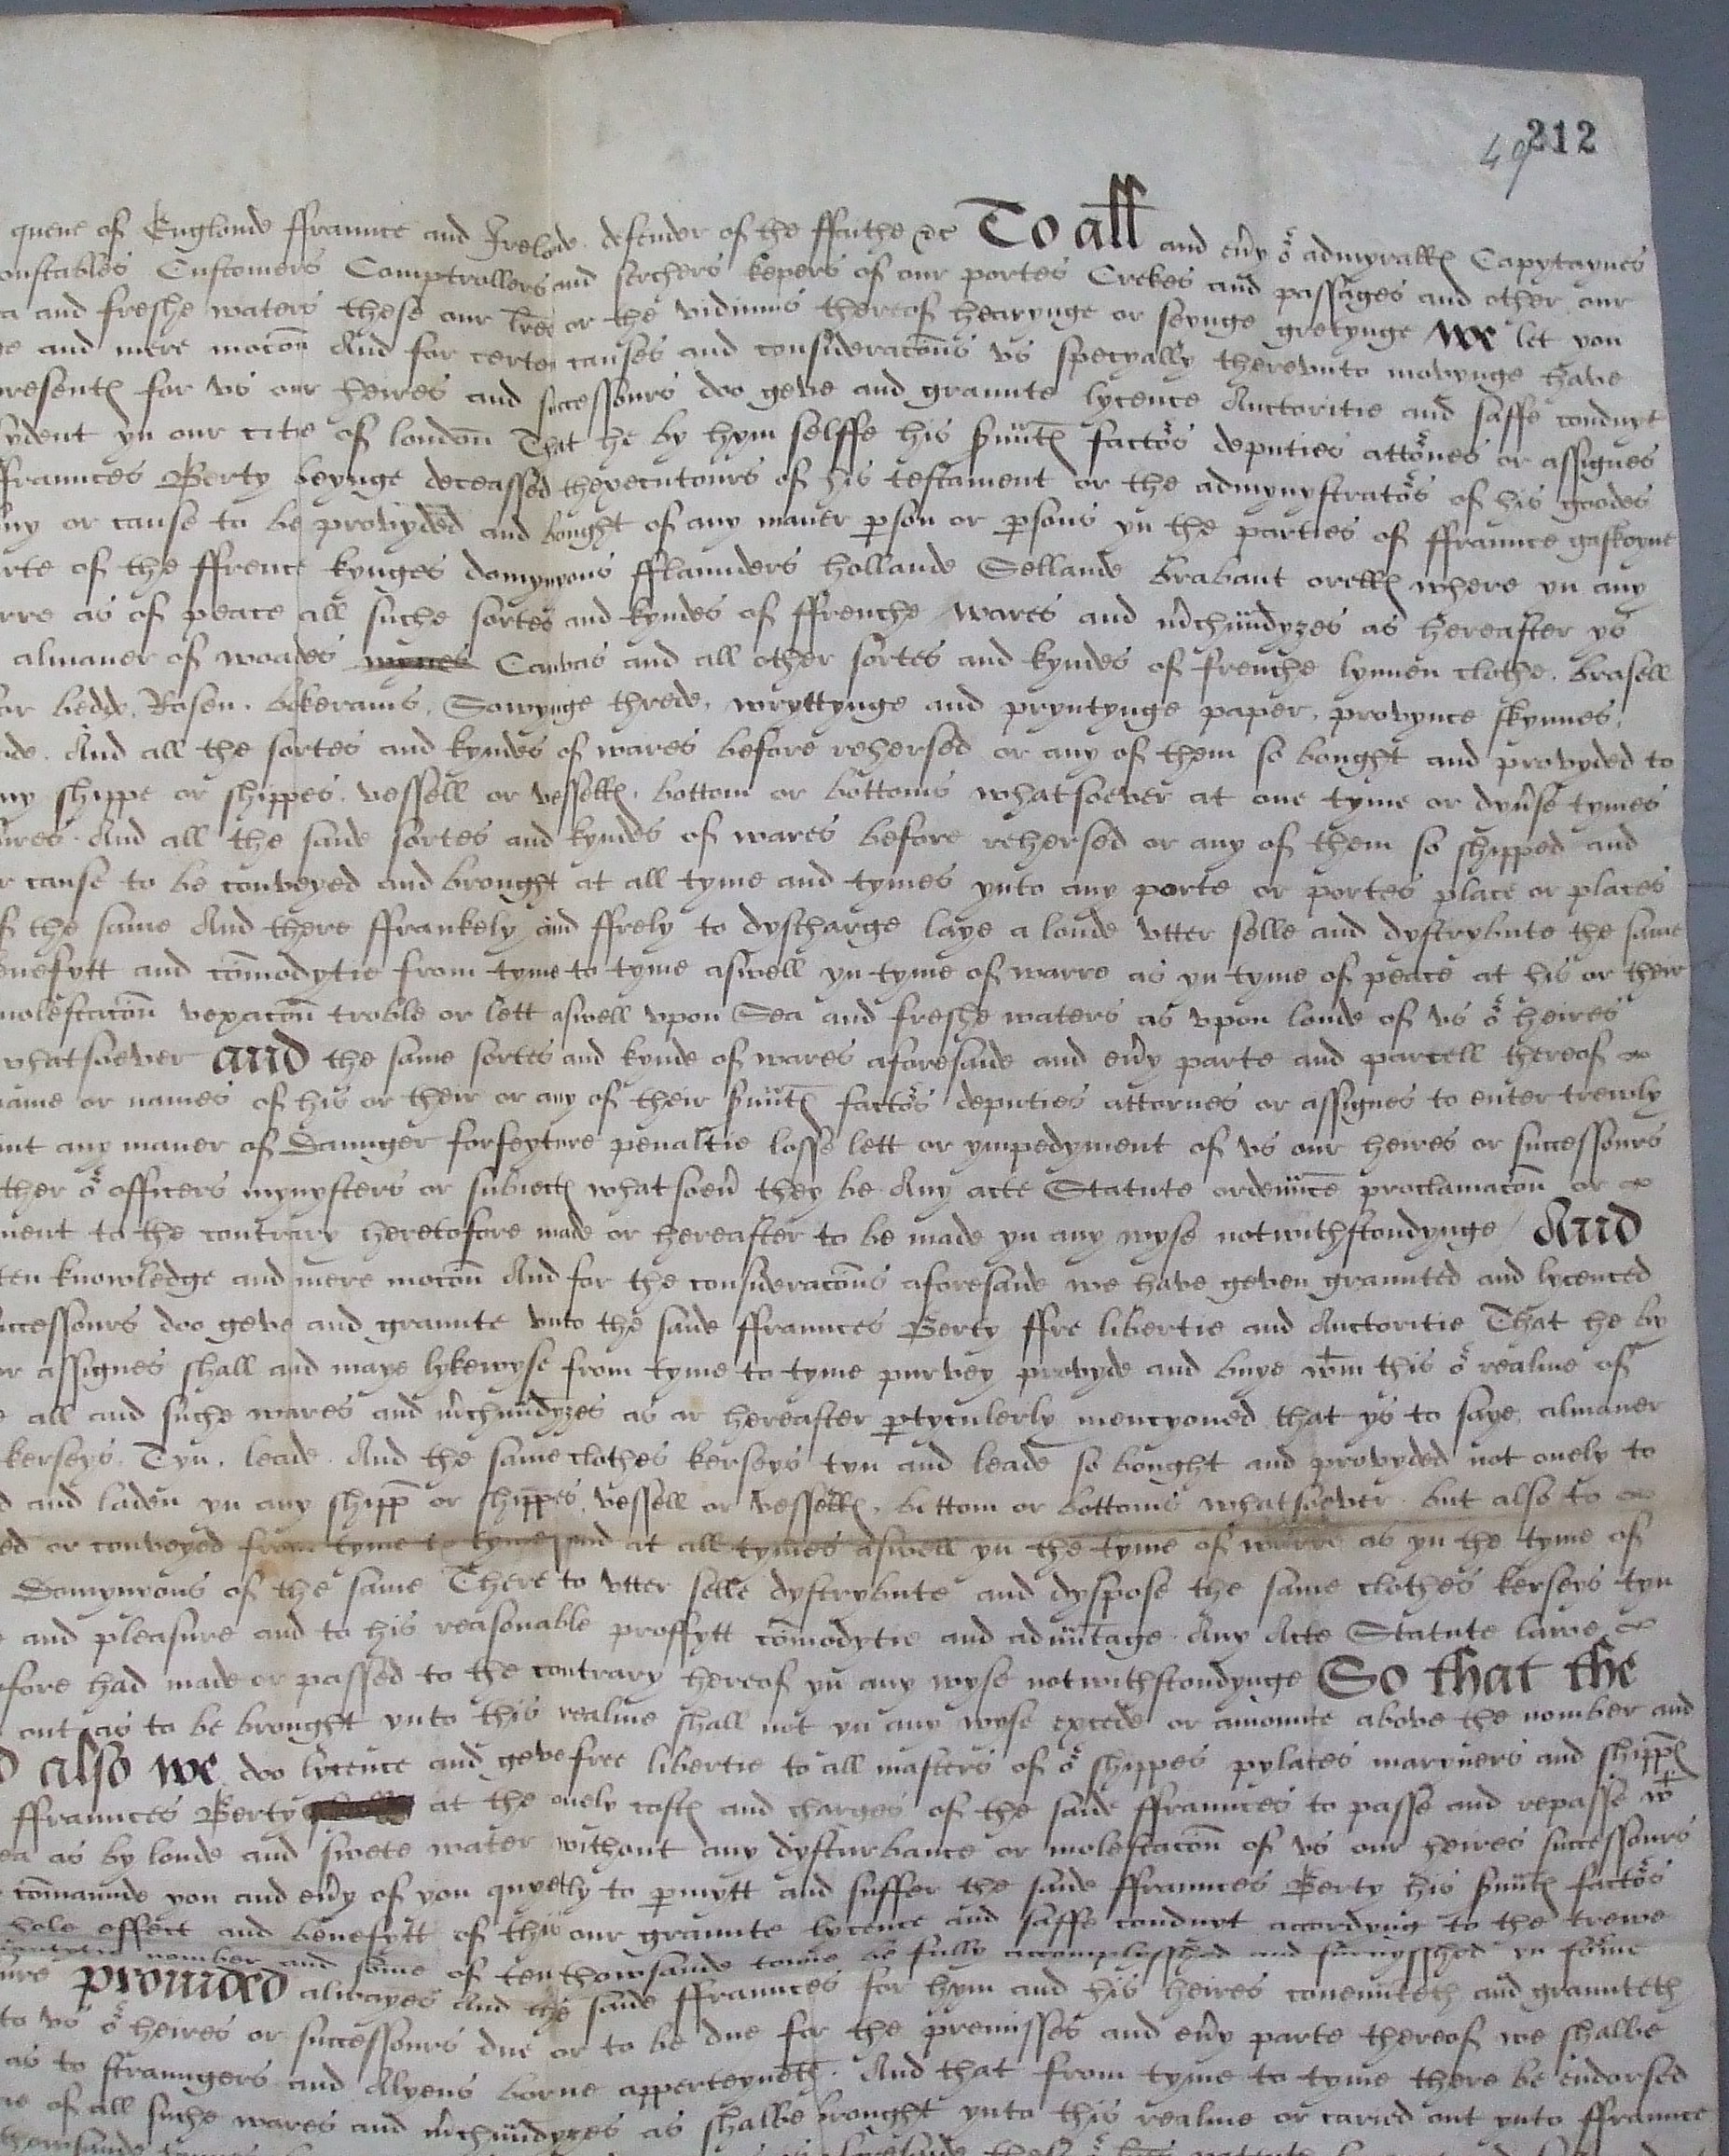 212
49
quene of Englande ffraunce and Irelande defender of the ffaithe &c To all and eu'y or admyralles Capytaynes
onstables Customers Comptrollers and serchers kepers of our portes Crekes and passages and other our
a and freshe waters these our l'res or the vidimus thereof hearynge or seynge gretynge We let you
ge and mere moc̄on And for certen causes and considerac̄ons vs specyally therevnto movynge have
presentes for vs our heires and successours doo geve and graunte lycence Auctoritie and saffe conduyt
ydent yn our citie of london̄ That he by hym selffe his s'untes factors deputies attornes or assignes
ffraunces Berty beynge deceassed thexecutours of his testament or the admynystrators of his goodes
uy or cause to be provyded and bought of any maner p'son or p'sons yn the parties of ffraunce gaskoyne
rte of the ffrenche kynges domynyons fflaunders hollande Sellande Brabant or elles where yn any
rre as of peace all suche sortes and kyndes of ffrenche wares and m'chaundyzes as hereafter ys
almaner of woades wynes Canvas and all other sortes and kyndes of frenche lynnen clothe . Brasell
or bedde . Rosen . bokerams . Sowynge threde . wryttynge and pryntynge paper . provynce skynnes .
de . And all the sortes and kyndes of wares before rehersed or any of them so bought and provyded to
ny shippe or shippes . vessell or vesselles . bottom or bottoms whatsoever at one tyme or dyu'se tymes
ures . And all the saide sortes and kyndes of wares before rehersed or any of them so shipped and
r cause to be conveyed and brought at all tyme and tymes ynto any porte or portes place or places
f the same And there ffrankely and ffrely to dyscharge laye a londe vtter selle and dystrybute the same
enefytt and com̄odytie from tyme to tyme aswell yn tyme of warre as yn tyme of peace at his or their
molestac̄on vexac̄on troble or lett aswell vpon Sea and freshe waters as vpon londe of vs or heires
whatsoever And the same sortes and kynde of wares aforesaide and eu'y parte and parcell thereof
name or names of his or their or any of their s'untes factors deputies attornes or assignes to enter trewly
ut any maner of Daunger forfeyture penaltie losse lett or ympedyment of vs our heires or successours
ther or officers mynysters or subiectes whatsoeu' they be Any acte Statute ordenn̄ce proclamac̄on or
ment to the contrary heretofore made or hereafter to be made yn any wyse notwithstondynge / And
ten knowledge and mere moc̄on And for the considerac̄ons aforesaide we have geven graunted and lycenced
uccessours doo geve and graunte vnto the saide ffraunces Berty ffre libertie and Auctoritie That he by
or assignes shall and maye lykewyse from tyme to tyme purvey provyde and buye wtin this or realme of
e all and suche wares and m'chaundyzes as ar hereafter p'tyculerly mencyoned that ys to saye almaner
kerseys . Tyn . leade . And the same clothes kerseys tyn and leade so bought and provyded not onely to
d and laden yn any shipp or shippes . vessell or vesselles . bottom or bottoms whatsoever . but also to
ed or conveyed from tyme to tyme and at all tymes aswell yn the tyme of warre as yn the tyme of
Domynyons of the same There to vtter selle dystrybute and dyspose the same clothes kerseys tyn
e and pleasure and to his reasonable proffytt com̄odytie and aduntage . Any Acte Statute lawe
fore had made or passed to the contrary hereof yn any wyse notwithstondynge So that the
out as to be brought ynto this realme shall not yn any wyse excede or amounte above the nomber and
d also we doo lycence and geve free libertie to all masters of or shippes pylates maryners and shipps
ffraunces Berty at the onely costes and charges of the saide ffraunces to passe and repasse wt
ea as by londe and swete water without any dysturbance or molestac̄on of vs our heires successours
com̄aunde you and eu'y of you quyetly to p'mytt and suffer the saide ffraunces Berty his s'untes factors
hole effect and benefytt of this our graunte lycence and saffe conduyt accordyng to the trewe
nomber and some of ten thowsande tonne be fully accomplysshed and furnysshed yn forme
ure provided alwayes And the saide ffraunces for hym and his heires covennteth and graunteth
to vs or heires or successours due or to be due for the premisses and eu'y parte thereof we shalbe
as to straungers and Alyens borne apperteyneth . And that from tyme to tyme there be endorsed
ne of all suche wares and m'chaundyzes as shalbe brought ynto this realme or caried out ynto ffraunce